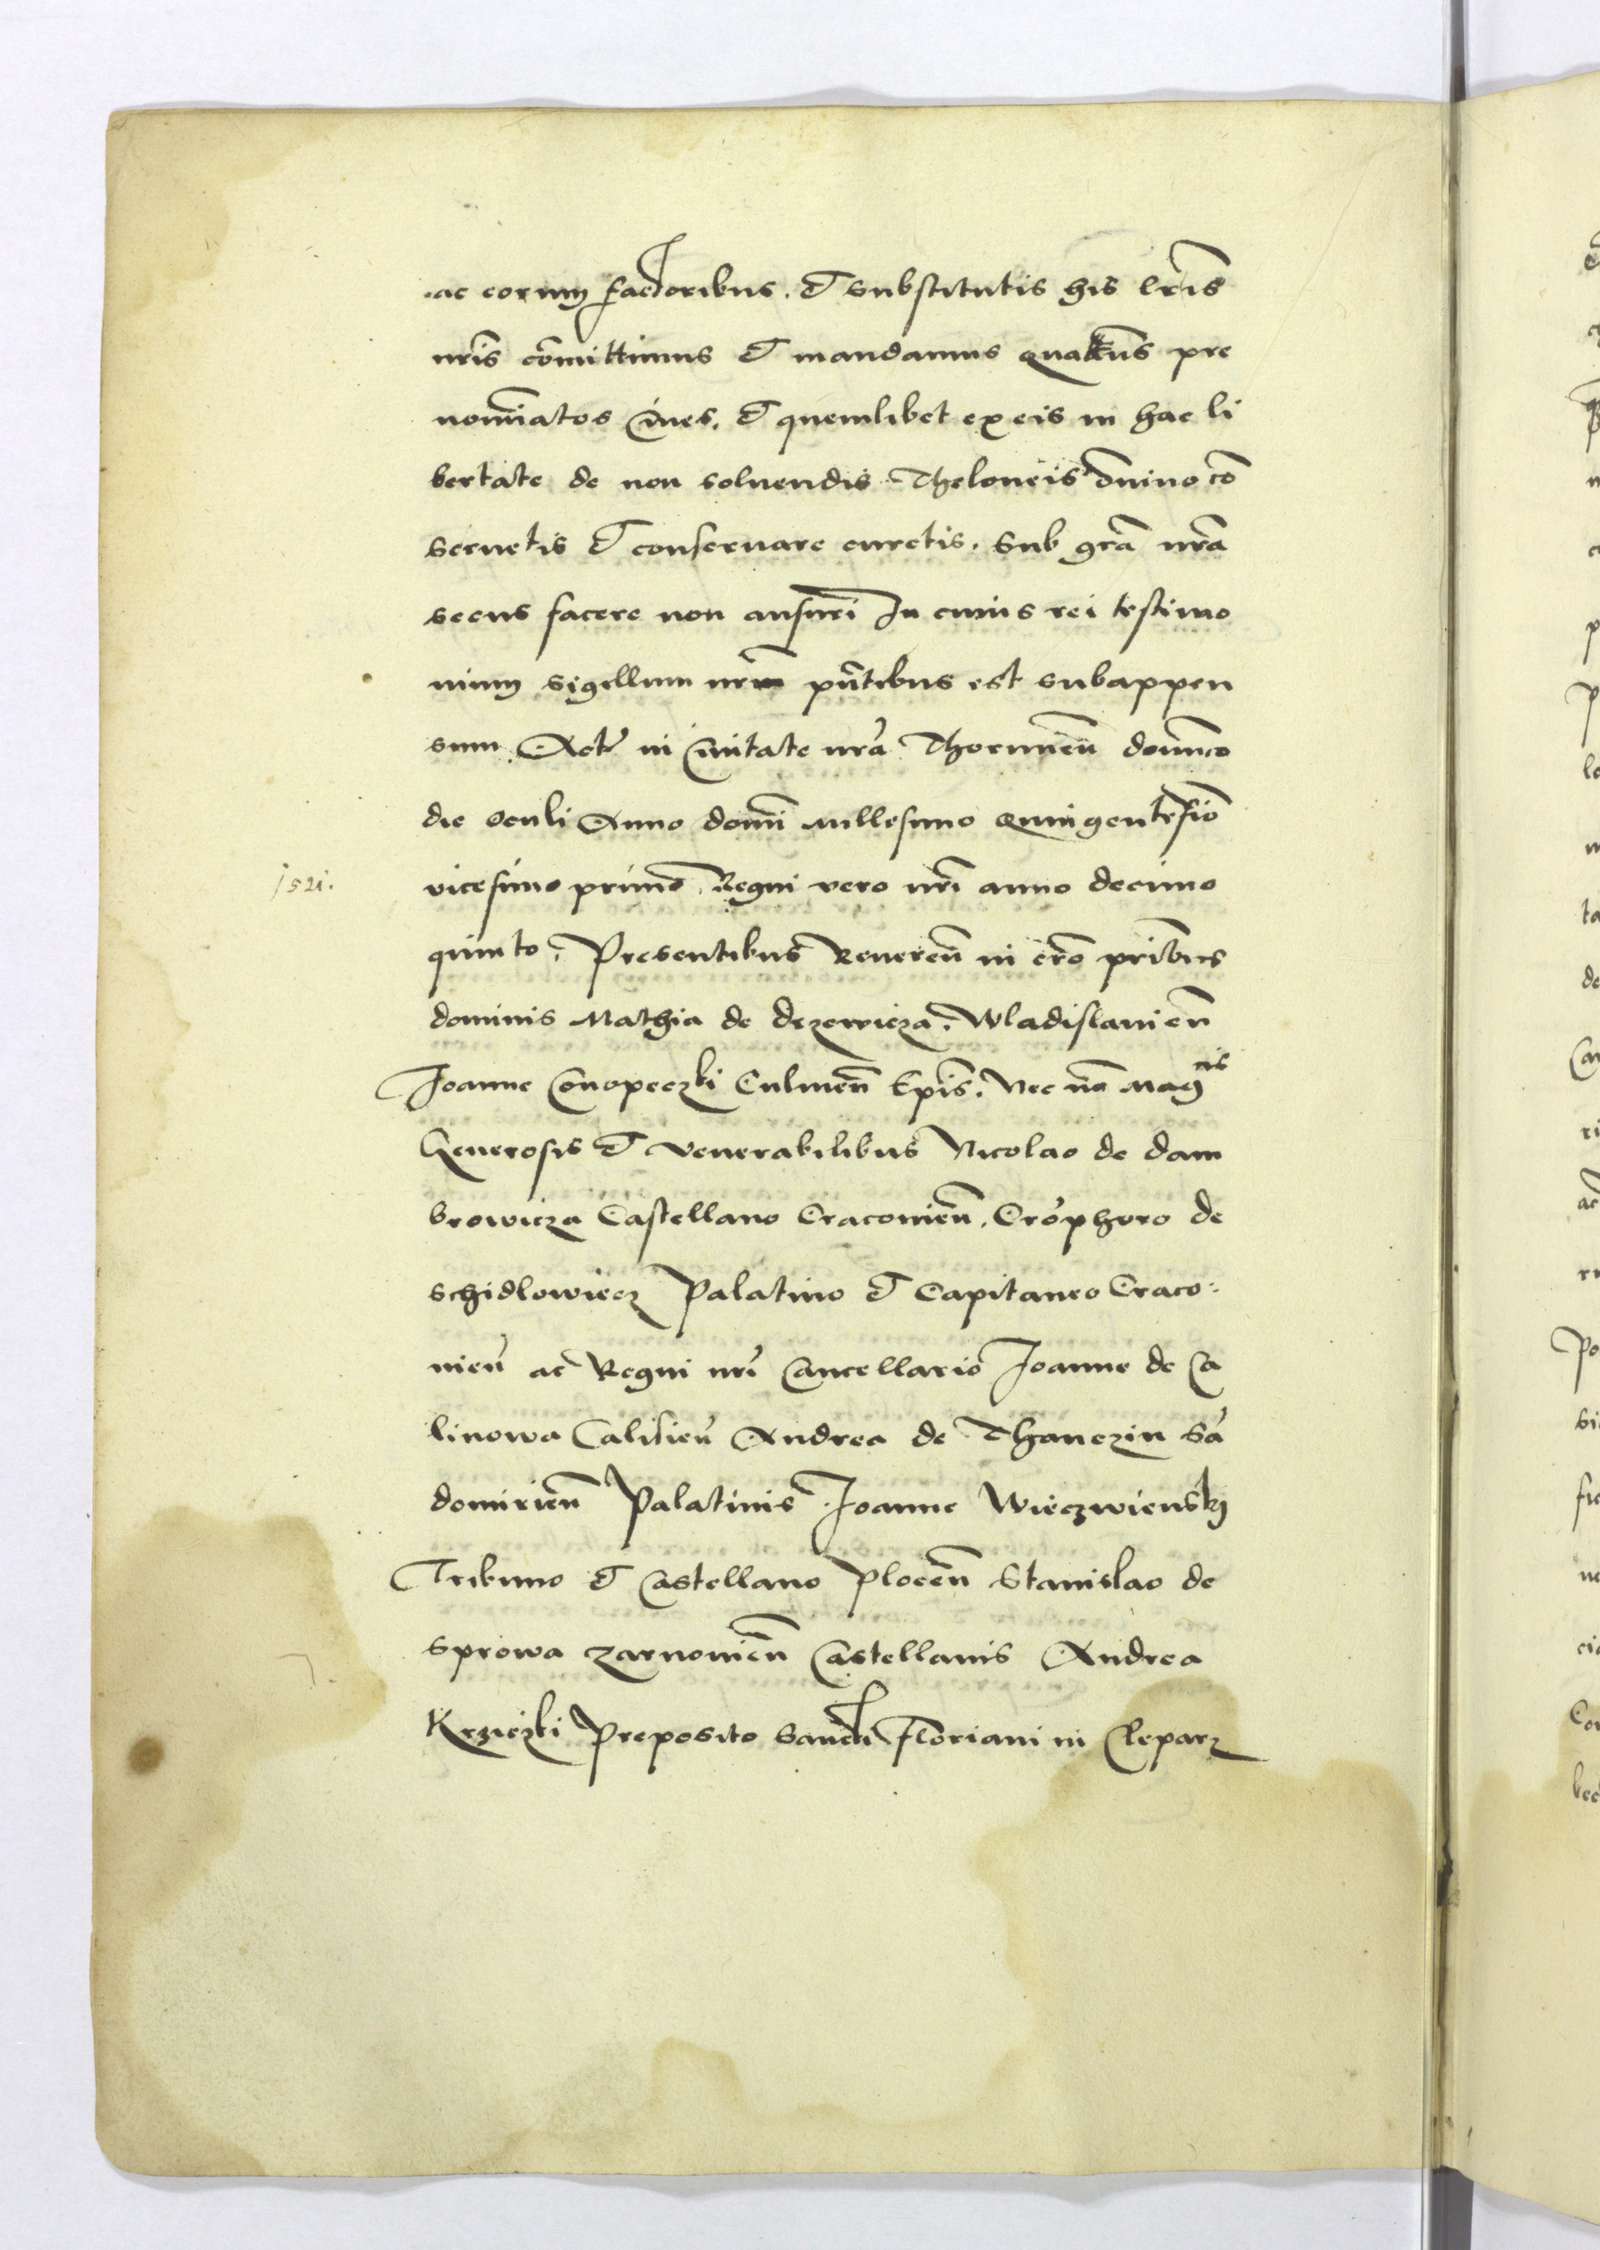 ac eorum factoribus. et substitutis his lr̃is
nr̃is com̃ittimus et mandamus quaten̄s pre
nomĩatos Ciues. et quemlibet ex eis in hac li
bertate de non soluendis Theloneis om̃ino co͂
seruetis et conseruare curetis. Sub gr̃a nr̃a
secus facere non ansuri In cuius rei testimo
nium sigellum nr̃m pñtibus est subappen
sum. Act̃ in Ciuitate nr̃a Thorunen̄ domĩco
die Oculi Anno domĩ millesimo Quingentesiõ
1521.
vicesimo primo. Regni vero nr̃i anno decimo
quinto. Presentibus Reueren̄ in cr̃o pr̃ibus
dominis Mathia de Drzewicza. Wladislauien̄
Joanne Conopeczki Culmen̄ Ep̃is. Nec nõ Mag^cis
Generosis et venerabilibus Nicolao de Dam
browicza Castellano Cracouien̄. Cr̃ophoro de
Schidlowiecz Palatino et Capitaneo Craco-
uien̄ ac Regni nr̃i Cancellario Joanne de Ca
linowa Calisien̄ Andrea de Thanczin Sã
domirien̄ Palatinis Joanne Wieczwienskj
Tribuno et Castellano Plocen̄ Stanislao de
Sprowa Zarnouien̄ Castellanis Andrea
Krziczki Preposito Sancti Floriani in Cleparz